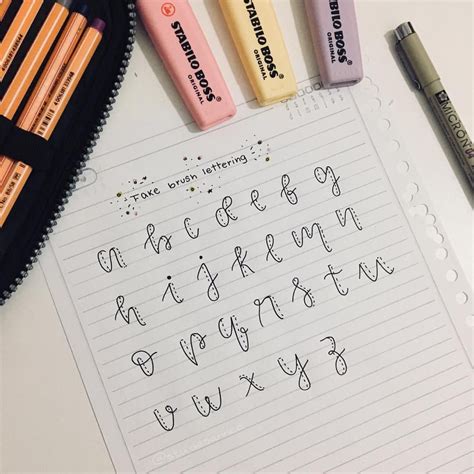 STABILO BOSS
ORIGINAL
STABILO BOSS
ORIGINAL
STABILO BOSS
ORIGINAL
MICRON
Fake brush lettering
a b c d e f g
h i j k l m n
o p q r s t u
v w x y z